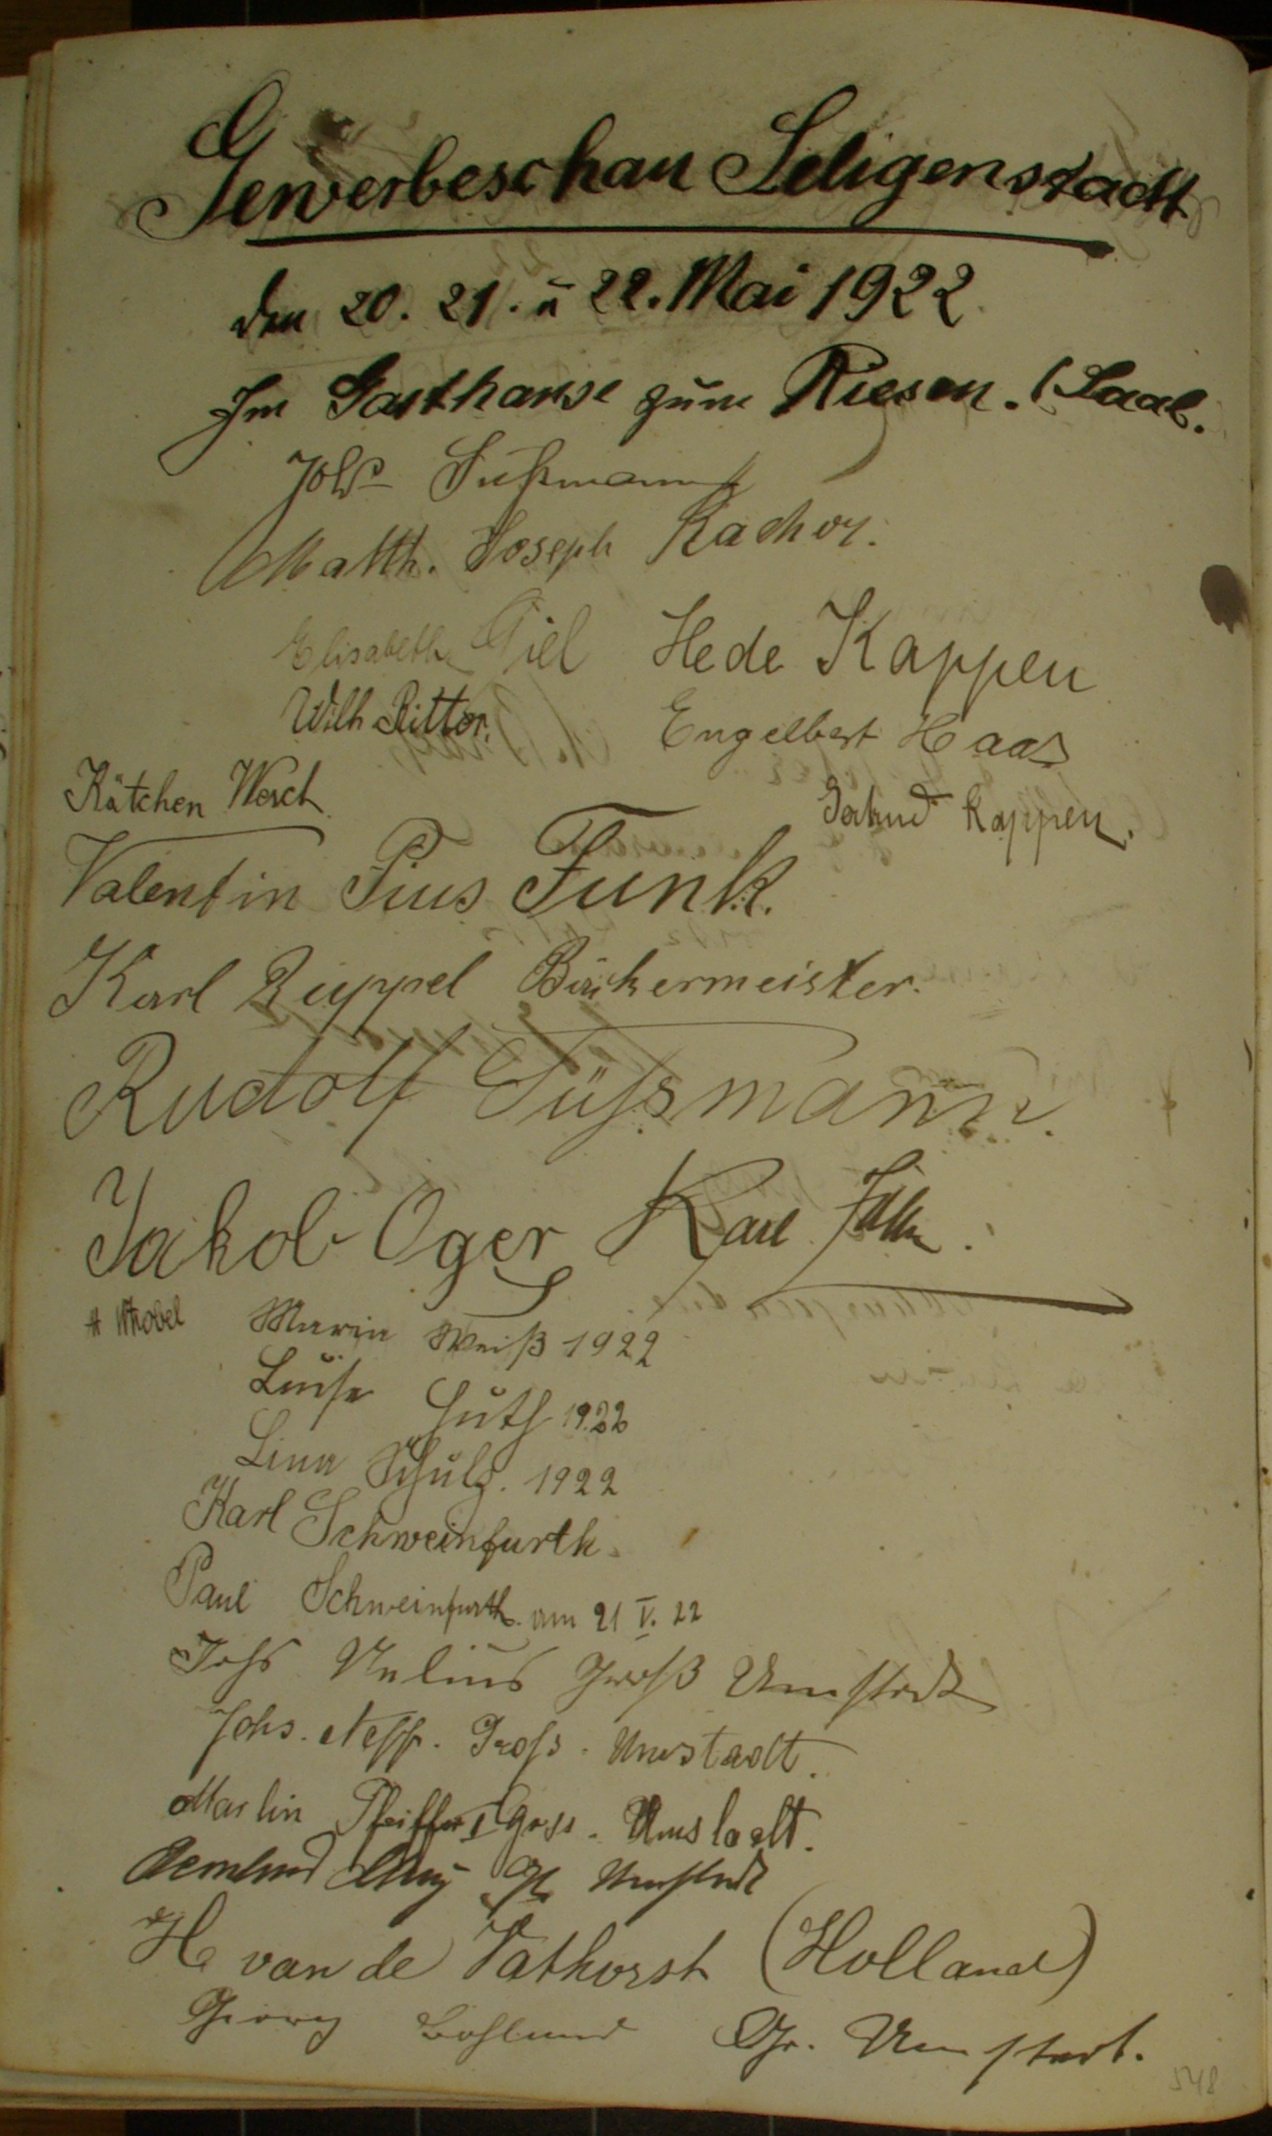 Gewerbeschau Seligenstadt
den 20. 21. u 22. Mai 1922
Im Gasthause zum Riesen. (Saal.
Johs Süßmann
Matth. Joseph Kachor.
Elisabeth Giel Hede Kappen
Wilh Ritter. Engelbert Haas
Kätchen Werch Kappen.
Valentin Pius Funk.
Karl Rüppel Bäckermeister.
Rudolf Süßmann.
Jakob Oger Karl
Maria Weiß 1922
Luise Huth 1922
Lina Schulz. 1922
Karl Schweinfurth
Paul Schweinfurth am 21 V. 22
Johs Groß Umstadt
Johs. Neff. Gross-Umstadt.
Martin Pfeiffer I Gross-Umstadt.
Umstadt
H. van de Vathorst (Holland)
Georg Gr. Umstadt.
548